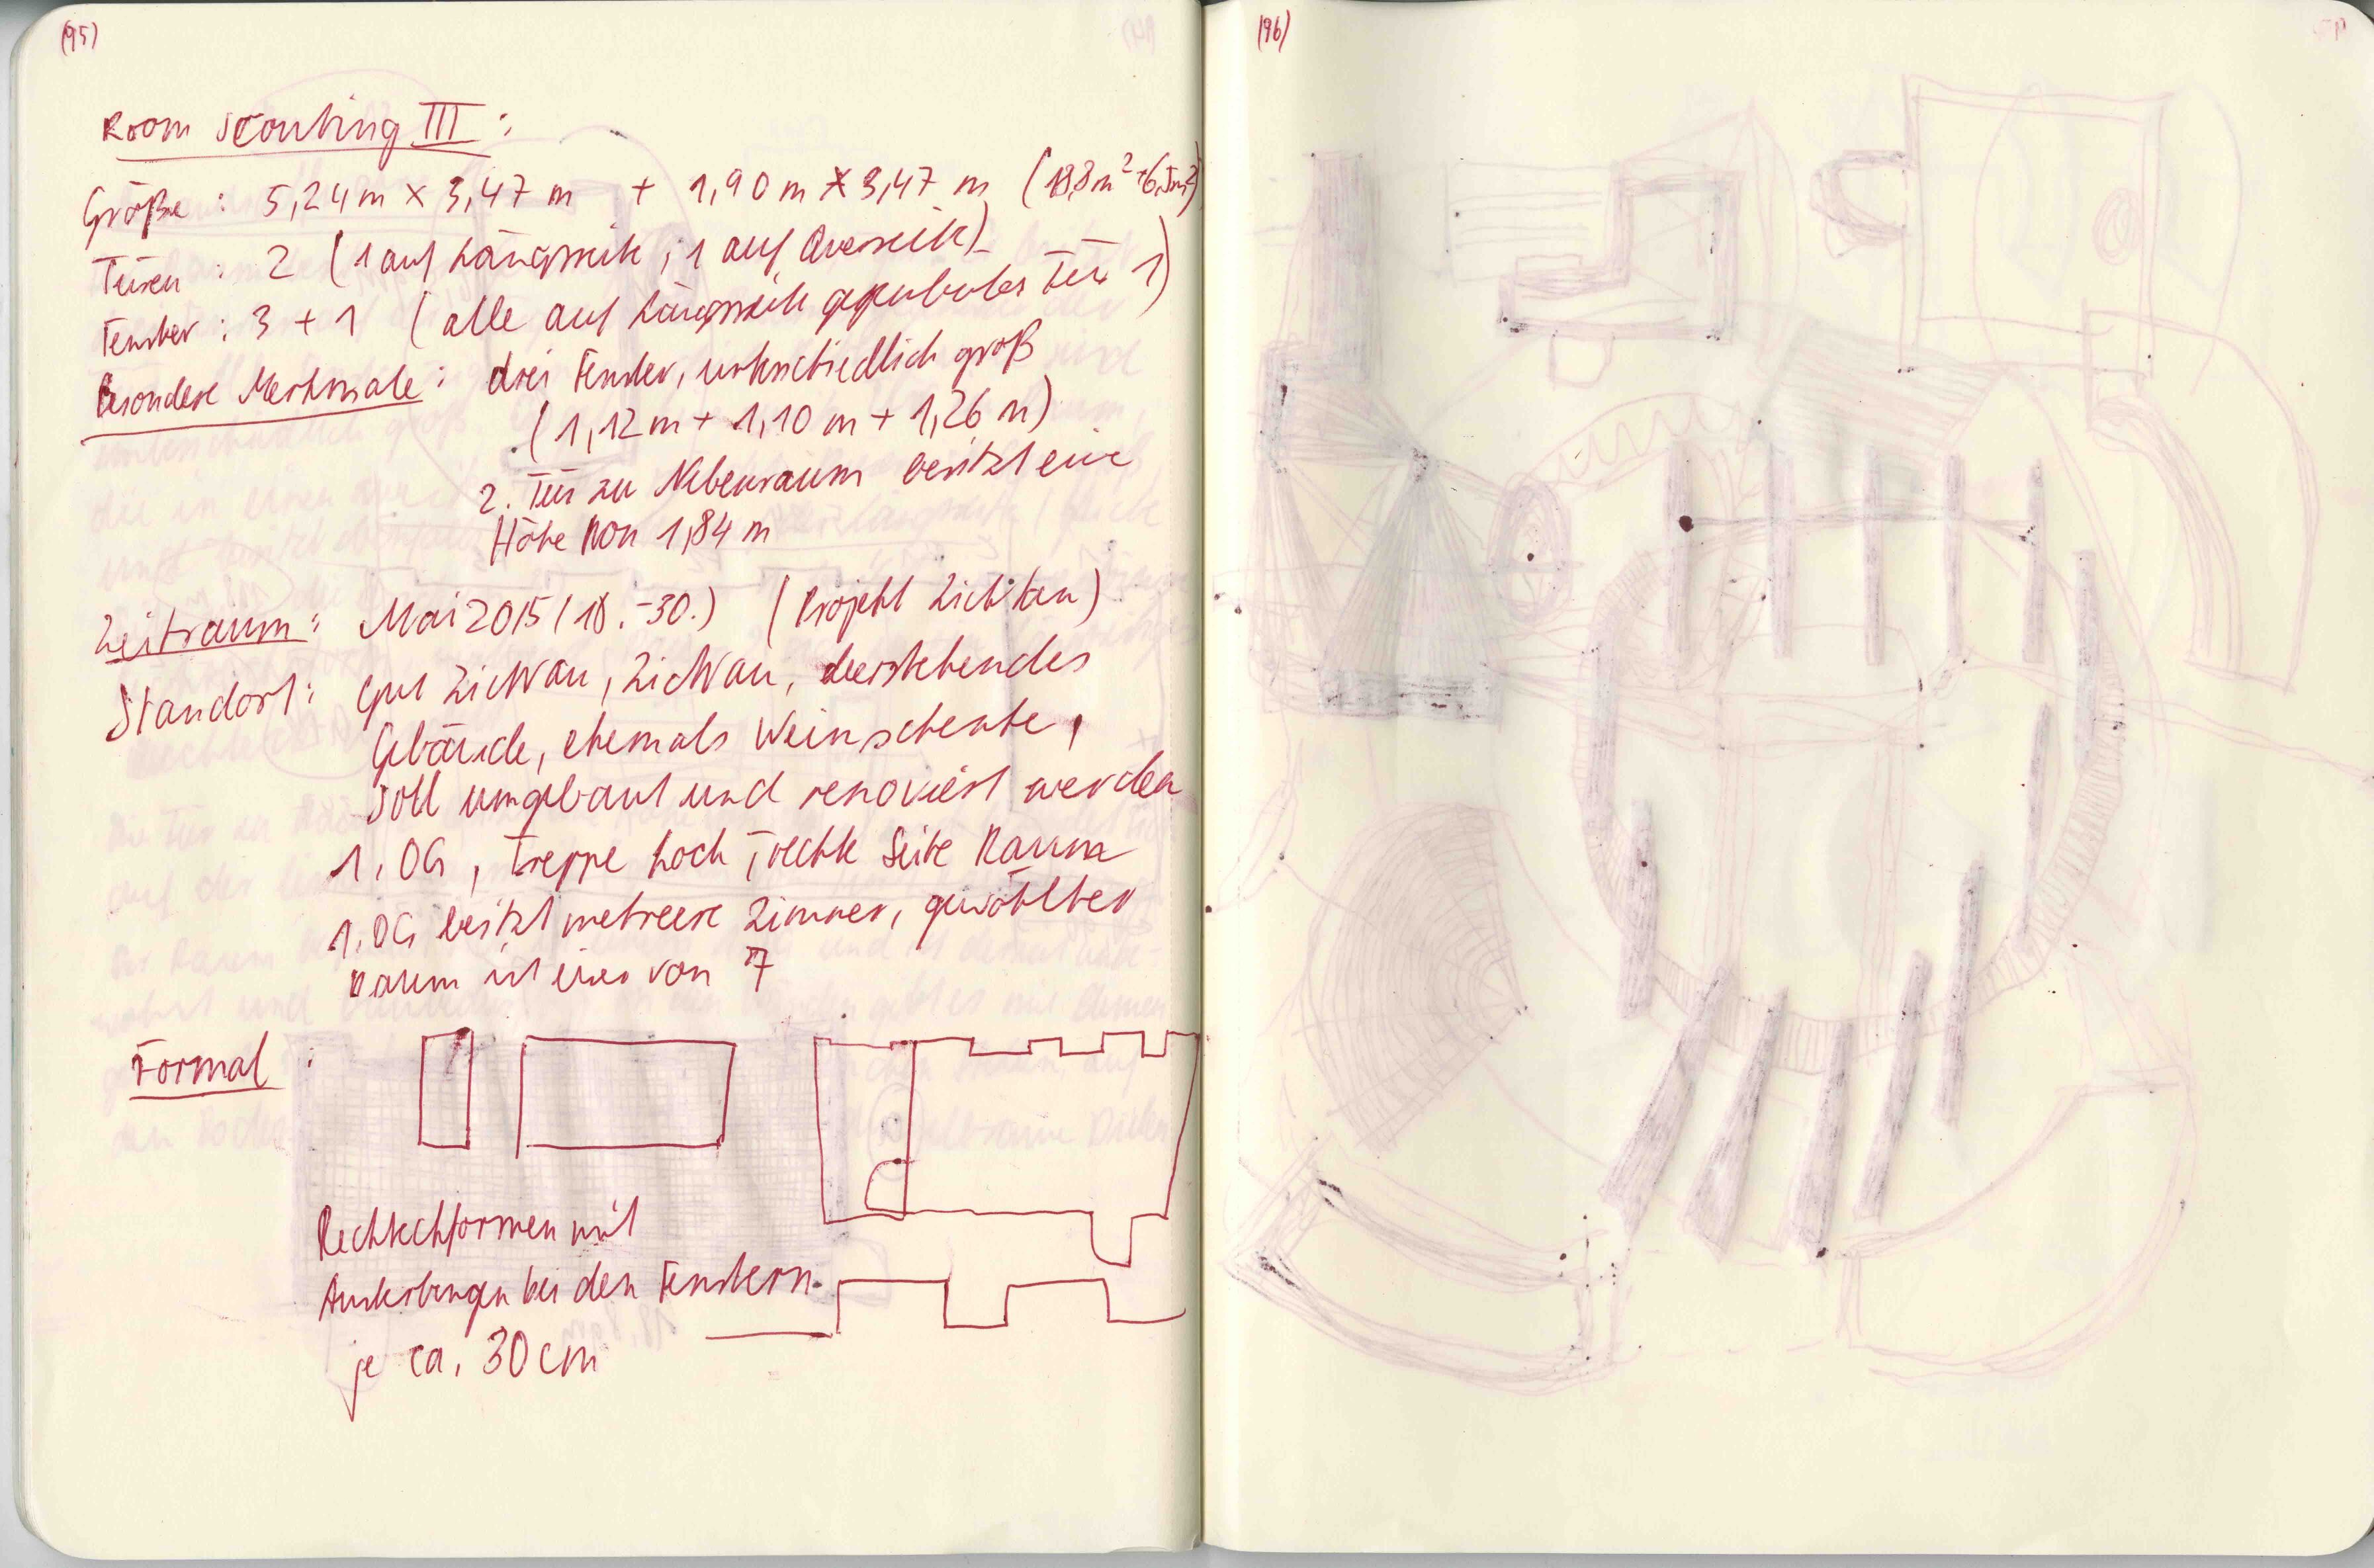 (95)
Room scouting III :
Größe : 5,24m x 3,47 m + 1,90 m x 3,47 m (18,8m² + 6,5m²)
Türen : 2 (1 auf Längsseite ; 1 auf Querseite)
Fenster : 3 + 1 (alle auf Längsseite gegenüber Tür 1)
Besondere Merkmale : drei Fenster, unterschiedlich groß
(1,12m + 1,10 m + 1,26 m)
2. Tür zu Nebenraum besitzt eine
Höhe von 1,84 m
Zeitraum : Mai 2015 (18.-30.) (Projekt Zichtau)
Standort : Gut Zichtau, Zichtau, leerstehendes
Gebäude, ehemals Weinschenke,
soll umgebaut und renoviert werden
1. OG, Treppe hoch, rechte Seite Raum
1. OG besitzt mehrere Zimmer, gewölbter
Raum ist eines von 7
Formal :
Rechteckformen mit
bei den Fenstern
je ca. 30 cm
(96)